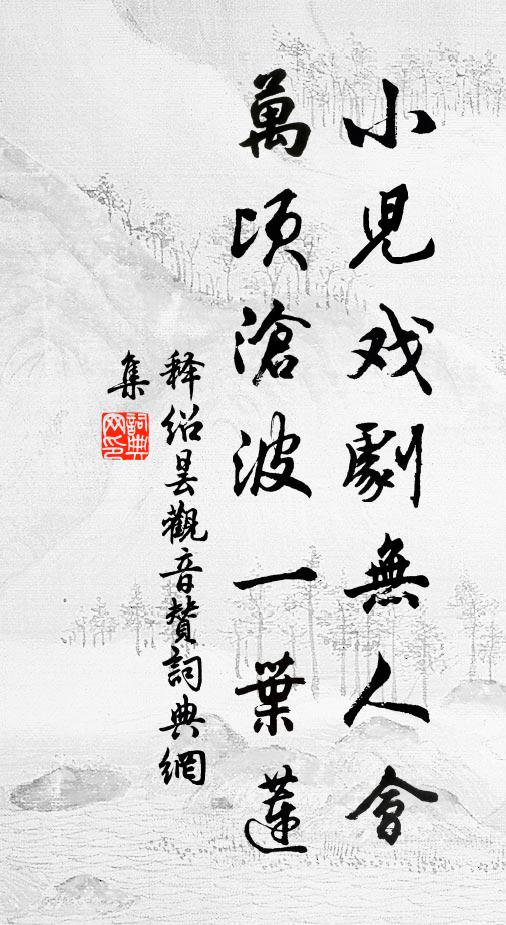 小児戏劇無人會
萬頃滄波一葉蓮
释绍昙觀音贊詞典網
集
詞典网印